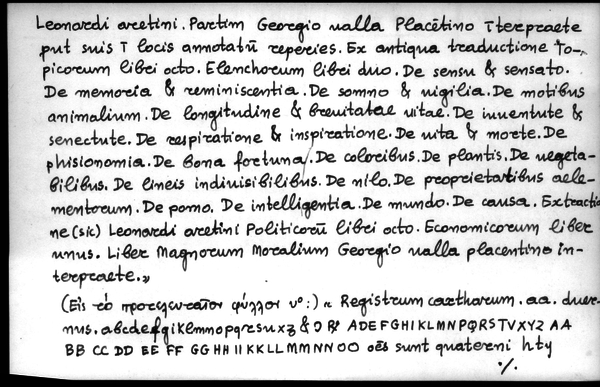 Leonardi aretini. Partim Georgio ualla Placẽtino Iterpraete
put suis I locis annotatũ reperies. Ex antiqua traductione To-
picorum libri octo. Elenchorum libri duo. De sensu & sensato.
De memoria & reminiscentia. De somno & uigilia. De motibus
animalium. De longitudine & breuitatae uitae. De iuuentute &
senectute. De respiratione & inspiratione. De uita & morte. De
phisionomia. De bona fortuna. De coloribus. De plantis. De uegeta-
bilibus. De lineis indiuisibilibus. De nilo. De proprietatibus aele-
mentorum. De pomo. De intelligentia. De mundo. De causa. Extractio
ne (sic) Leonardi aretini Politicorũ libri octo. Economicorum liber
unus. Liber Magnorum Moralium Georgio ualla placentino in-
terpraete.»
(Εἰς τὸ προτελευταῖον φύλλον vº:) « Registrum cartharum. aa. duer-
nus. abcdefgiklmnopqrsuxz & ADEFGHIKLMNPQRSTVXYZ AA
BB CC DD EE FF GG HH II KK LL MM NN OO oẽs sunt quaterni